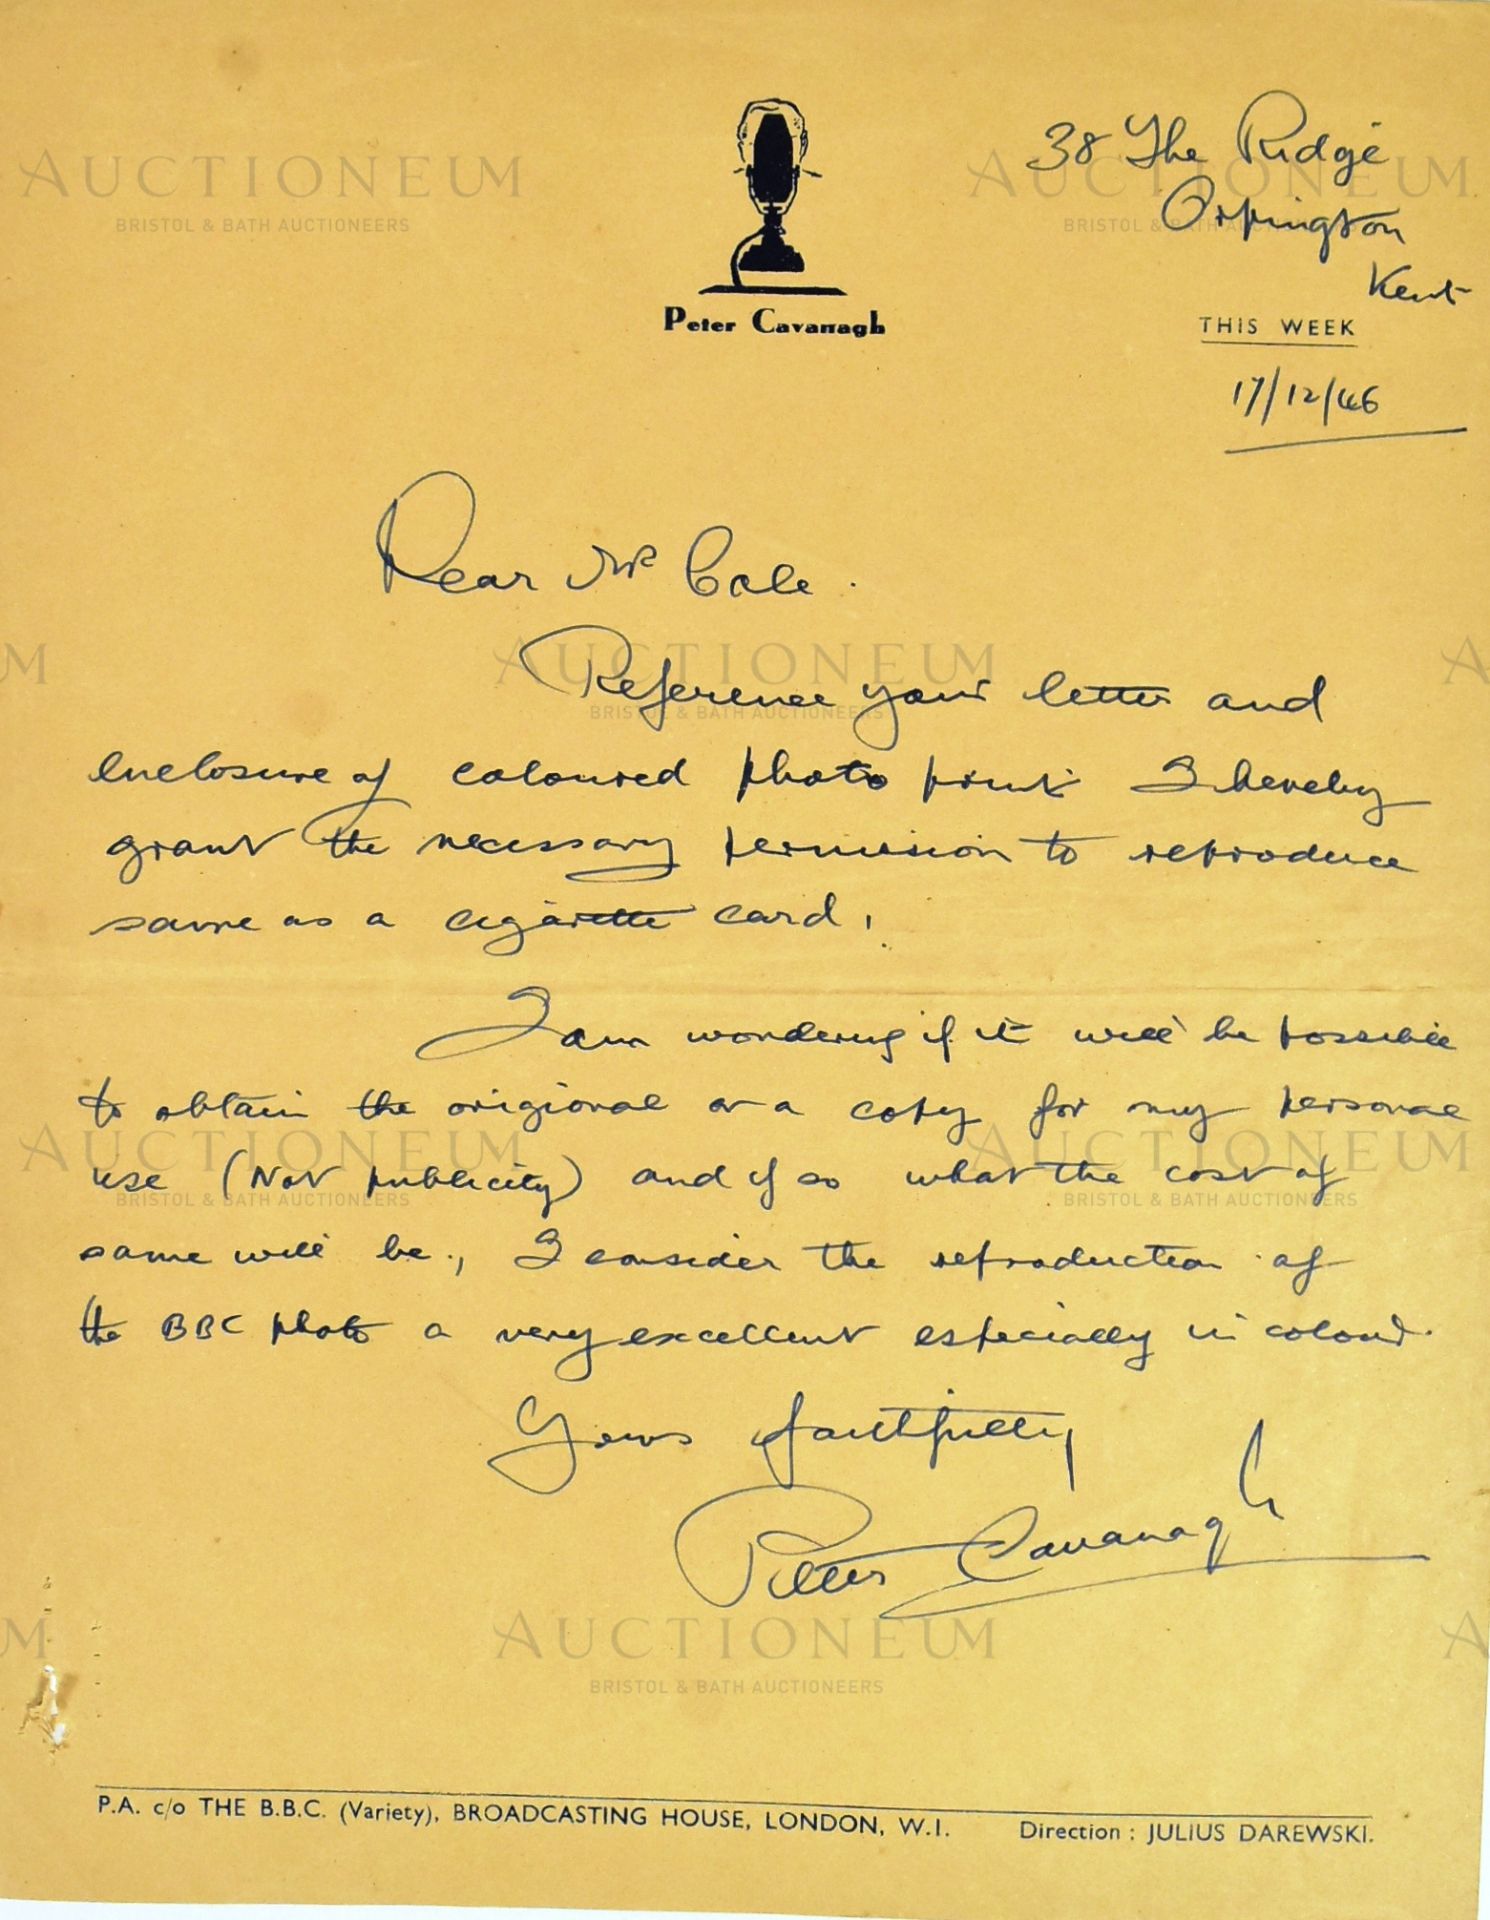 38 The Ridge
Orpington
Kent
Peter Cavanagh
THIS WEEK
17/12/46
Dear Mr Cole.
Reference your letter and
enclosure of coloured photo print I hereby
grant the necessary permission to reproduce
same as a cigarette card.
I am wondering if it will be possible
to obtain the origional or a copy for my personal
use (Not publicity) and if so what the cost of
same will be., I consider the reproduction of
the BBC photo a very excellent especially in colour.
Yours faithfully
Peter Cavanagh
P.A. c/o THE B.B.C. (Variety), BROADCASTING HOUSE, LONDON, W.1. Direction : JULIUS DAREWSKI.
AUCTIONEUM
BRISTOL & BATH AUCTIONEERS